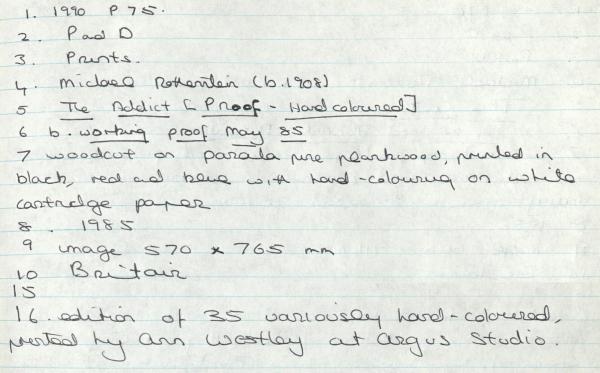 1. 1990 P 75.
2. Pad D
3. Prints.
4. Michael Rothenstein (b.1908)
5 The Addict [Proof - Hand coloured]
6 b. working proof May 85
7 woodcut on parala pine plankwood, printed in
black, red and blue with hand-colouring on white
cartridge paper
8. 1985
9 image 570 x 765 mm
10 Britain
15
16. edition of 35 variously hand-coloured,
printed by Ann Westley at Argus Studio.